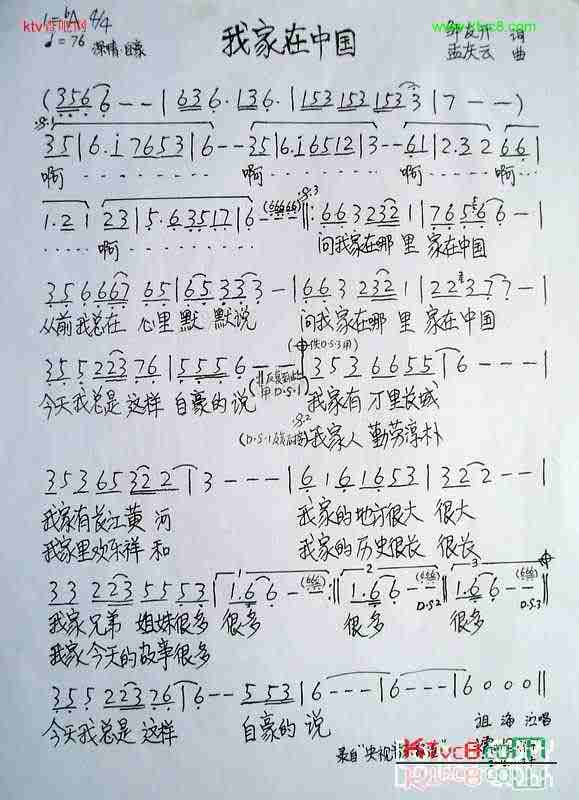 ktvc8.com
www.ktvc8.com
1=♭A 4/4
♩=76 深情 自豪
我家在中国
词
孟庆云 曲
(3 5 6 6 - - | 6 3 6 · 1 3 6 · | 1 5 3 1 5 3 1 5 3 3 | 7 - - )
3 5 | 6 · i 7 6 5 3 | 6 - - 3 5 | 6 · i 6 5 1 2 | 3 - - 6 1 | 2 · 3 2 6 6 |
啊 啊 啊 啊
1 · 2 1 2 3 | 5 · 6 3 5 1 7 | 6 - - - ‖: 6 6 3 2 2 3 2 1 | 7 6 5 6 6 - |
啊 问我家在哪里 家在中国
3 5 6 6 6 7 6 5 | 6 5 3 3 3 - | 6 6 3 2 2 3 2 1 | 2 2 3 7 7 - |
从前我总在 心里默默说 问我家在哪里 家在中国
3 5 5 2 2 3 7 6 | 5 5 5 6 - 3 5 3 6 6 5 5 | 6 - - - |
今天我总是这样自豪的说 我家有万里长城
我家人勤劳淳朴
3 5 3 6 5 3 2 2 | 3 - - - | 6 1 6 1 6 5 3 | 3 2 2 - - |
我家有长江黄河 我家的地方很大 很大
我家里欢乐祥和 我家的历史很长 很长
3 3 2 2 3 5 5 5 3 | 1 · 6 6 - :‖ 1 · 6 6 - D.S.2 | 1 · 6 6 - D.S.3 |
我家兄弟姐妹很多 很多 很多 很多
我家今天的故事很多
3 5 5 2 2 3 7 6 | 6 - - 5 5 3 | 6 - - - | 6 - - - | 6 0 0 0 ‖
今天我总是这样 自豪的说
祖海 演唱
Ktvc8.com